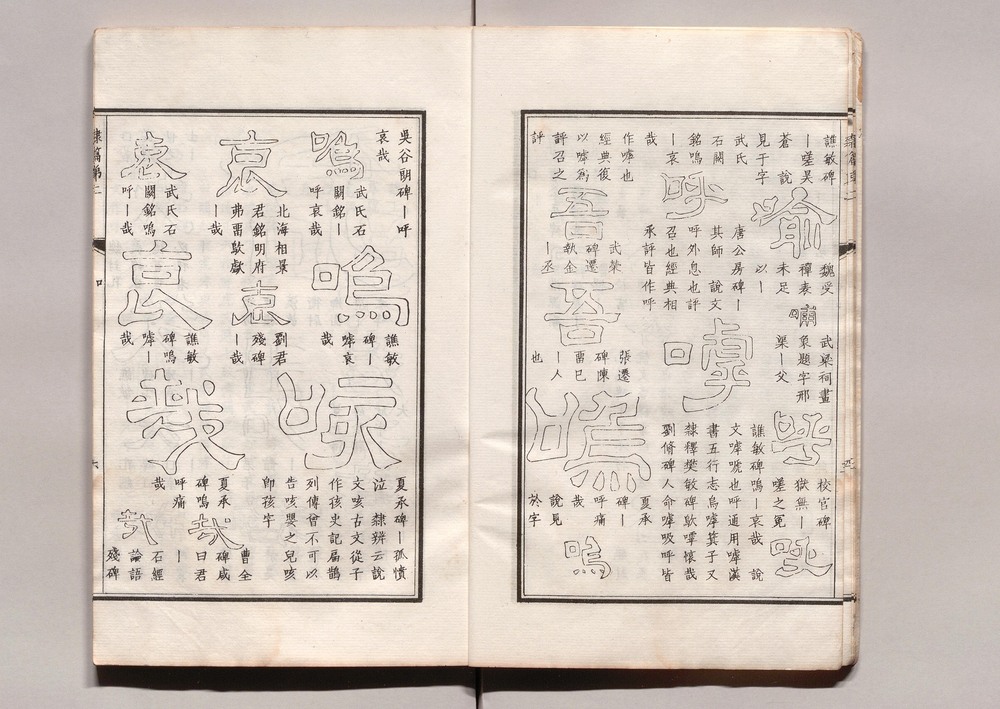 譙敏碑
｜嗟昊
蒼 說
見于字
喻
魏受
禪表
未足
以｜
嘯
武梁祠畫
象題字邢
渠｜父
呼
校官碑
獄無｜
嗟之冤
吪
武氏
石闕
銘嗚
｜哀
哉
呼
唐公房碑｜
其師 說文
呼外息也評
召也經典相
承評皆作呼
嘑
譙敏碑嗚｜哀哉 說
文嘑唬也呼通用嘑漢
書五行志烏嘑箕子又
隸釋樊敏碑歍嘑懷哉
劉脩碑人命嘑吸呼皆
作嘑也
經典復
以嘑爲
評召之
評
吾
武榮
碑遷
執金
｜丞
吾
張遷
碑陳
畱已
｜人
也
嗚
夏承
碑｜
呼痛
哉
說見
於字
嗚
吳谷朗碑｜呼
哀哉
嗚
武氏石
闕銘｜
呼哀哉
嗚
譙敏
碑｜
嘑哀
哉
咳
夏承碑｜孤憤
泣 隸辨云說
文咳古文從子
作孩史記扁鵲
列傳曾不可以
告咳嬰之兒咳
即孩字
哀
北海相景
君銘明府
弗畱歍歔
｜哉
哀
劉君
殘碑
｜哉
哉
夏承
碑嗚
呼痛
｜
哉
曹全
碑咸
曰君
｜
哀
武氏石
闕銘嗚
呼｜哉
哀
譙敏
碑嗚
嘑｜
哉
哉
石經
論語
殘碑